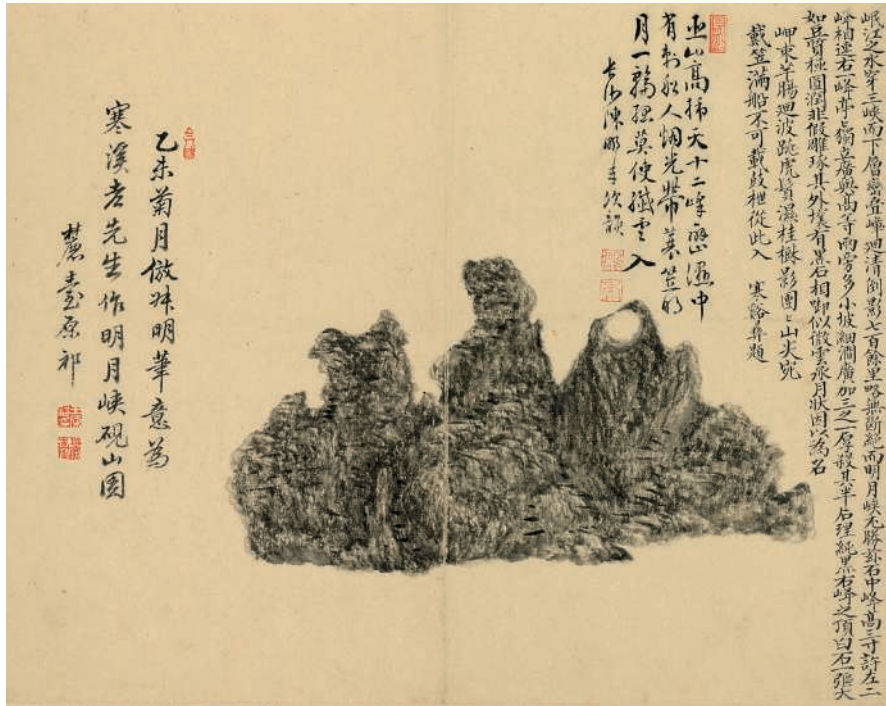 岷江之水穿三峽而下層巒疊嶂迴清倒影七百餘里略無斷絕而明月峽尤勝茲石中峰高三寸許左二
峰相連右一峰亭亭獨立廣與高等兩旁多小坡細澗廣加三之一厚殺其半石理純黑右峰之頂白石一張大
如豆質極圓潤非假雕琢其外有黑石相卸似微雲承月狀因以為名
峽束羊腸迴波跳虎鬚濕桂樹影團團山尖宛
戴笠滿船不可載鼓枻從此入 寒谿題
巫山高插天十二峰巒濕中
有刺船人烟光帶蓑笠明
月一輪孤莫使纖雲入
長沙陳鵬年次韻
乙未菊月倣叔明筆意為
寒溪老先生作明月峽硯山圖
麓臺原祁